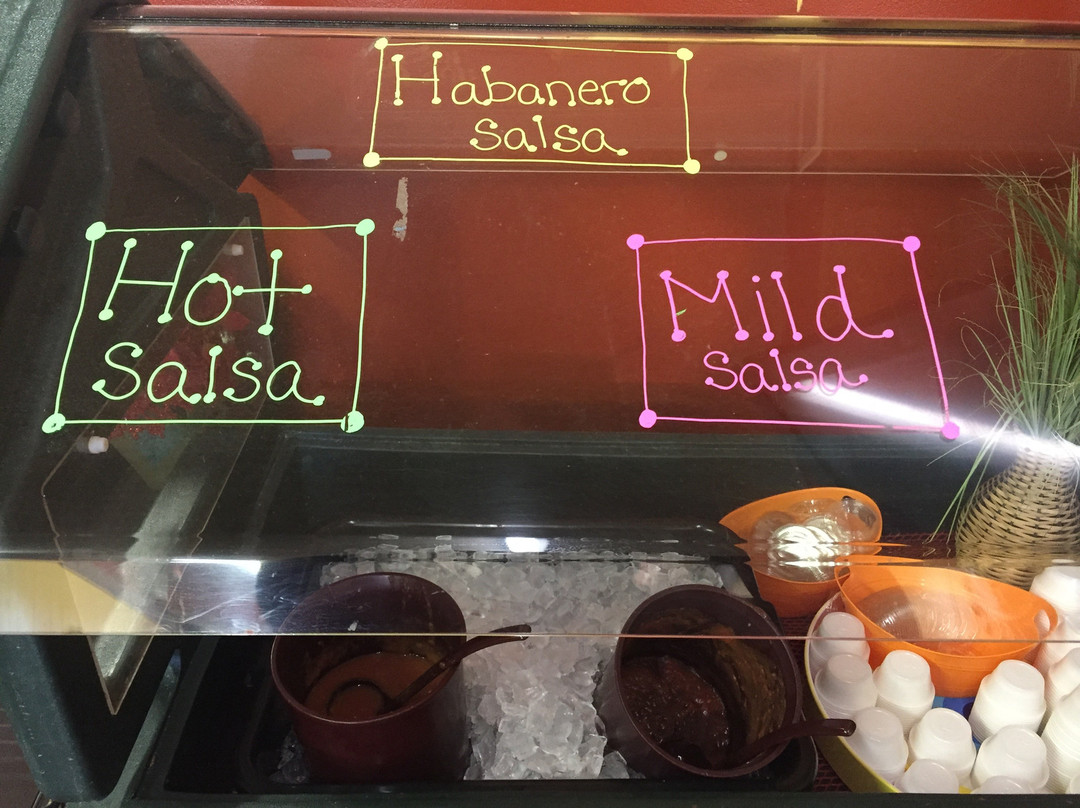 Habanero
Salsa
Hot
Salsa
Mild
Salsa